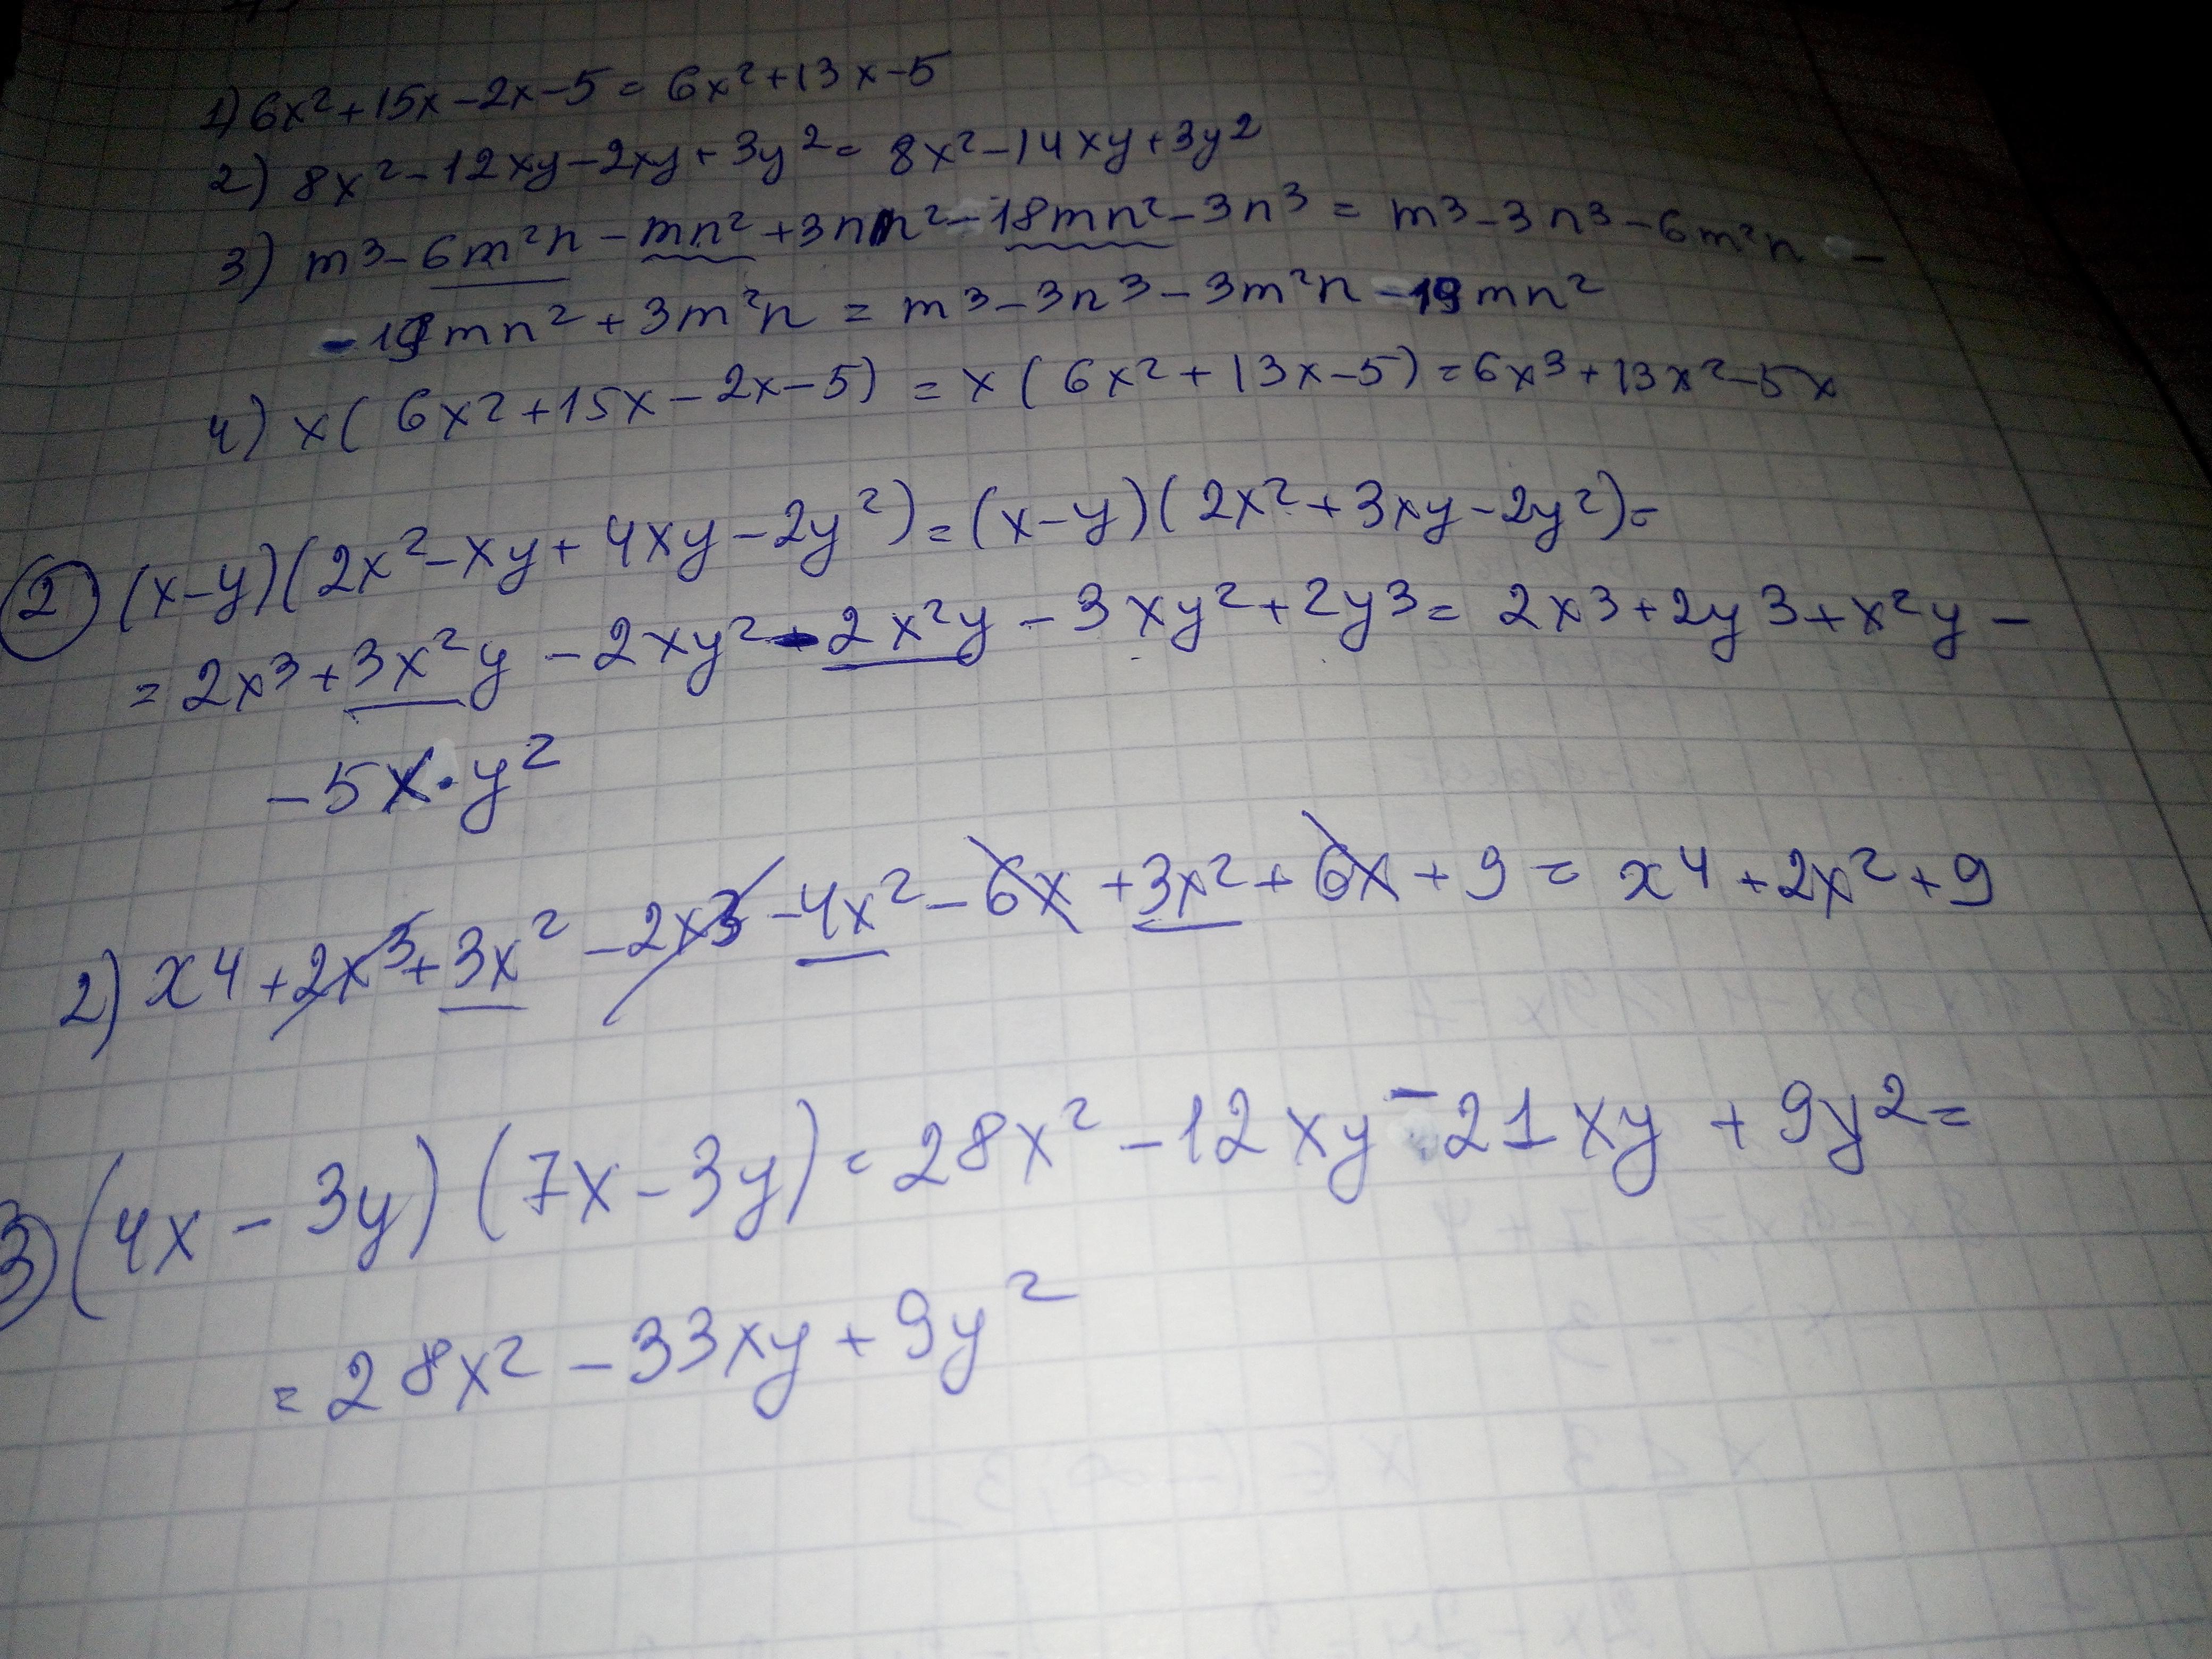 1) 6x²+15x-2x-5= 6x²+13x-5
2) 8x²-12xy-2xy+3y²= 8x²-14xy+3y²
3) m³-6m²n-mn²+3nm²-18mn²-3n³= m³-3n³-6m²n -
-19mn²+3m²n = m³-3n³-3m²n-19mn²
4) x(6x²+15x-2x-5) = x(6x²+13x-5)=6x³+13x²-5x
2) (x-y)(2x²-xy+4xy-2y²)=(x-y)(2x²+3xy-2y²)=
= 2x³+3x²y-2xy²-2x²y-3xy²+2y³= 2x³+2y³+x²y-
-5x·y²
2) x⁴+2x³+3x²-2x³-4x²-6x+3x²+6x+9= x⁴+2x²+9
3) (4x-3y)(7x-3y)=28x²-12xy-21xy+9y²=
= 28x²-33xy+9y²